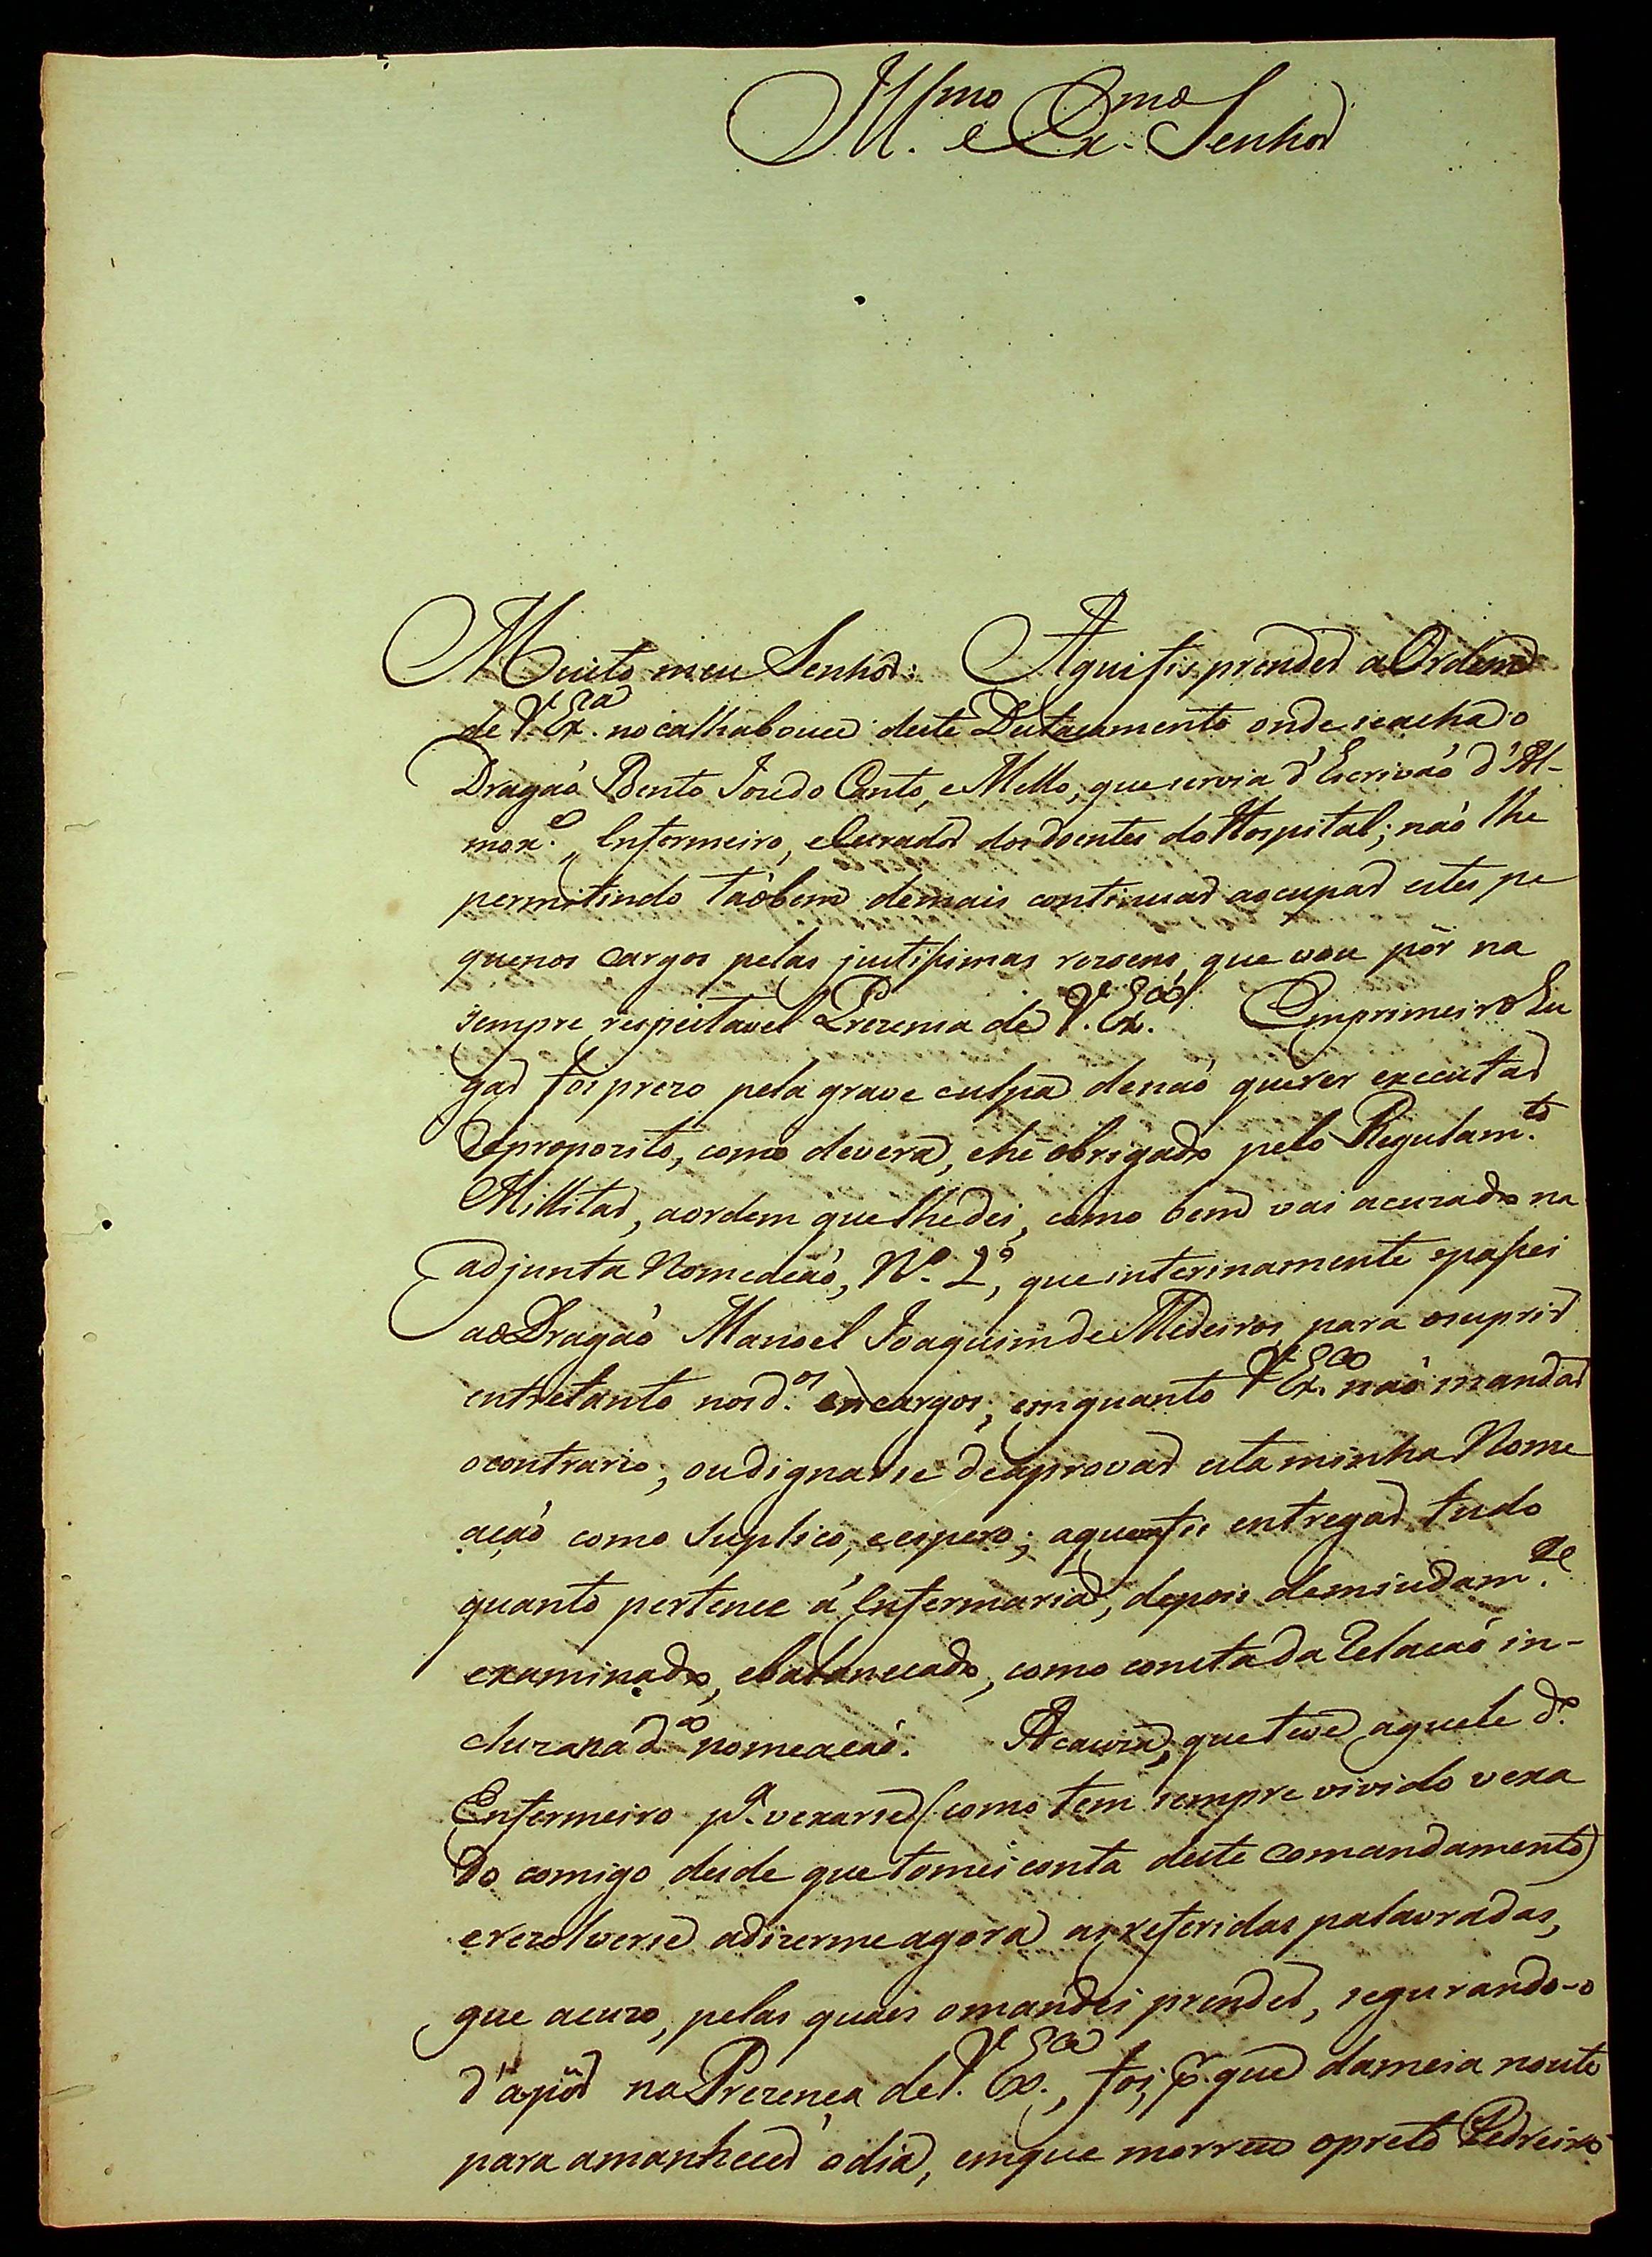 Ill.mo e Ex.mo Senhor
Muito meu Senhor: Aqui fis prender a Ordem
de V. Ex.ca no calhabouce deste Destacamento onde se acha o
Dragaõ Bento Joze do Canto, e Mello, que servia d'Escrivaõ d'Al-
mox.e, Enfermeiro, e Curador dos doentes do Hospital; naõ lhe
permitindo taõbem demais continuar a ocupar estes pe
quenos cargos pelas justissimas rezoens, que vou pôr na
sempre respeitavel Prezensa de V. Ex.ca Em primeiro Lu
gar foi prezo pela grave culpa de naõ querer executar
de proposito, como devera, e hé obrigado pelo Regulam.to
Millitar, a ordem que lhe dei, como bem vai acuzado na
adjunta Nomeaçaõ, N.º 2º, que interinamente passei
ao Dragaõ Manoel Joaquim de Medeiros para o suprir
entretanto nos d.os encargos, emquanto V. Ex.ca naõ mandar
o contrario; ou dignarse de aprovar esta minha Nome
açaõ como Suplico, e espero; a quem fis entregar tudo
quanto pertence á Enfermaria, depois de miudam.te
examinado, e balanceado, como consta da Relaçaõ in-
cluza na d.a nomeaçaõ. A cauza, que teve aquele d.º
Enfermeiro p.a vexarse (como tem sempre vivido vexa
do comigo desde que tomei conta deste comandamento)
e rezolverse a dizerme agora as referidas palavradas,
que acuzo, pelas quaes o mandei prender, segurando-o
d'a pôr na Prezença de V. Ex.ca, foi, p.r que da meia noute
para amanhecer o dia, em que morreu o preto Pedreiro